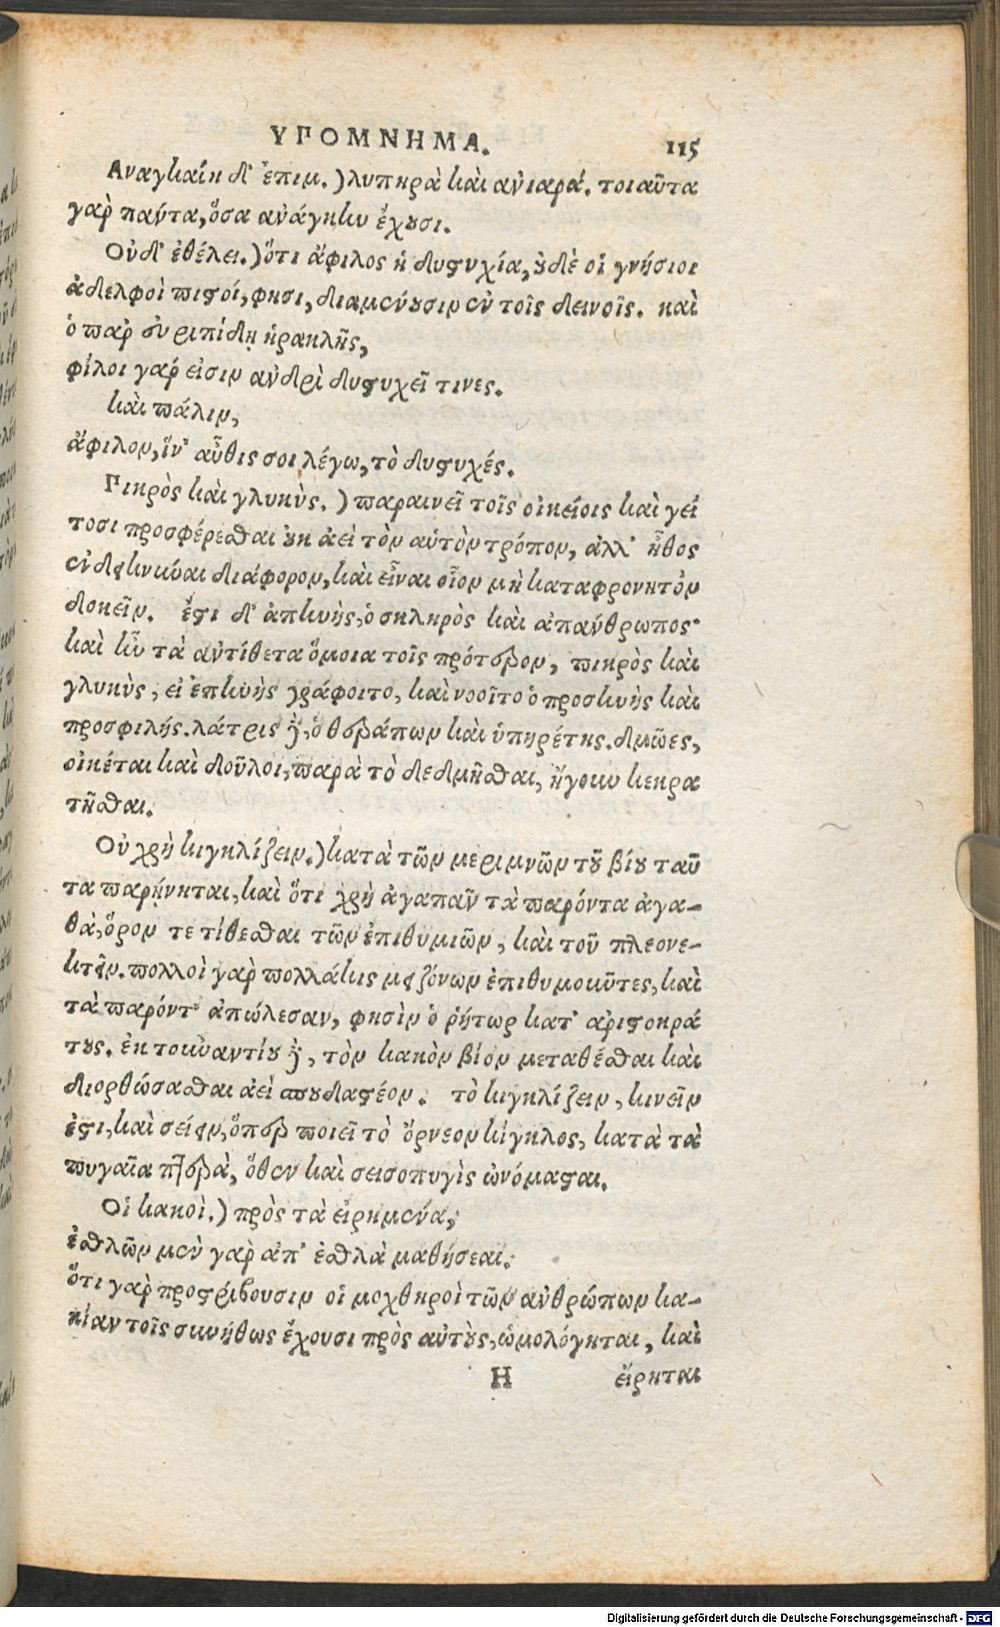 ΥΠΟΜΝΗΜΑ. 115
Αναγκαίη δ' ἐπιμ.) λυπηρὰ καὶ ἀνιαρά. τοιαῦτα
γαρ̀ πάντα, ὅσα ἀνάγκην ἔχουσι.
Οὐδ' ἐθέλει.) ὅτι ἄφιλος ἡ δυστυχία, οὐδὲ οἱ γνήσιοι
ἀδελφοὶ πιστοί, φησι, διαμένουσιν ἐν τοῖς δεινοῖς. καὶ
ὁ παρ' εὐριπίδῃ ἡρακλῆς,
φίλοι γάρ εἰσιν ἀνδρὶ δυστυχεῖ τινες.
καὶ πάλιν,
ἄφιλον, ἵν' αὖθις σοι λέγω, τὸ δυστυχές.
Πικρὸς καὶ γλυκὺς.) παραινεῖ τοῖς οἰκείοις καὶ γεί
τοσι προσφέρεσθαι οὐκ ἀεὶ τὸν αὐτὸν τρόπον, ἀλλ' ἦθος
ἐνδεικνύναι διάφορον, καὶ εἶναι οἷον μὴ καταφρονητὸν
δοκεῖν. ἔστι δ' ἀπηνὴς, ὁ σκληρὸς καὶ ἀπάνθρωπος·
καὶ ἦν τὰ ἀντίθετα ὅμοια τοῖς πρότερον, πικρὸς καὶ
γλυκὺς, εἰ ἐπηνὴς γράφοιτο, καὶ νοοῖτο ὁ προσηνὴς καὶ
προσφιλής. λάτρις δὲ, ὁ θεράπων καὶ ὑπηρέτης. δμῶες,
οἰκέται καὶ δοῦλοι, παρὰ τὸ δεδμῆσθαι, ἤγουν κεκρα
τῆσθαι.
Οὐ χρὴ κιγκλίζειν.) κατὰ τῶν μεριμνῶν τοῦ βίου ταῦ
τα παρῄνηται, καὶ ὅτι χρὴ ἀγαπᾶν τὰ παρόντα ἀγα-
θὰ, ὅρον τε τίθεσθαι τῶν ἐπιθυμιῶν, καὶ τοῦ πλεονε-
κτεῖν. πολλοὶ γαρ̀ πολλάκις μειζόνων ἐπιθυμοῦντες, καὶ
τὰ παρόντ' ἀπώλεσαν, φησὶν ὁ ῥήτωρ κατ' ἀριστοκρά
τους. ἐκ τοὐναντίου δὲ, τὸν κακὸν βίον μεταθέσθαι καὶ
διορθώσασθαι ἀεὶ σπουδαστέον. τὸ κιγκλίζειν, κινεῖν
ἐστι, καὶ σείειν, ὅπερ ποιεῖ τὸ ὄρνεον κίγκλος, κατὰ τὰ
πυγαῖα πτερὰ, ὅθεν καὶ σεισοπυγὶς ὠνόμασται.
Οἱ κακοὶ.) πρὸς τὰ εἰρημένα,
ἐσθλῶν μὲν γαρ̀ ἀπ' ἐσθλὰ μαθήσεαι.
ὅτι γαρ̀ προστρίβουσιν οἱ μοχθηροὶ τῶν ἀνθρώπων κα-
κίαν τοῖς συνήθως ἔχουσι πρὸς αὐτοὺς, ὡμολόγηται, καὶ
H εἴρηται
Digitalisierung gefördert durch die Deutsche Forschungsgemeinschaft - DFG